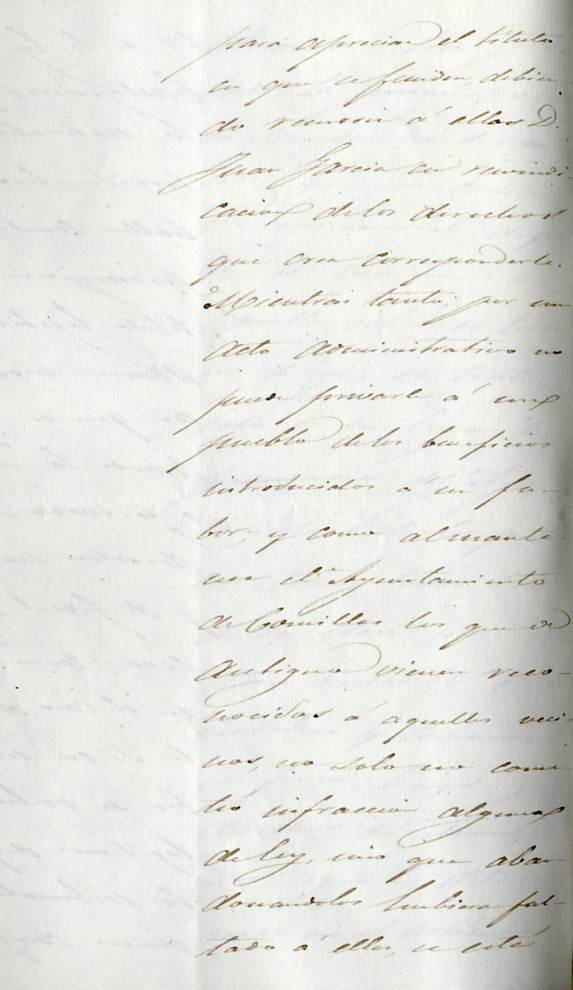 para apreciar el titulo
en que se funden, debien-
do recurrir á ellos D.
Juan Garcia en reivindi
cacion de los derechos
que crea corresponderle.
Mientras tanto por un
acto administrativo no
puede privarse á un
pueblo de los beneficios
introducidos á su fa-
bor, y como al mante-
ner el Ayuntamiento
de Comillas los que de
antiguo vienen reco-
nocidos á aquellos veci-
nos, no solo no come
tió infraccion alguna
de ley, sino que aban-
donandolos hubiera fal-
tado á ella, se está